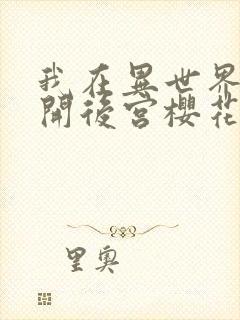 我在異世界
開後宮櫻花
里奧